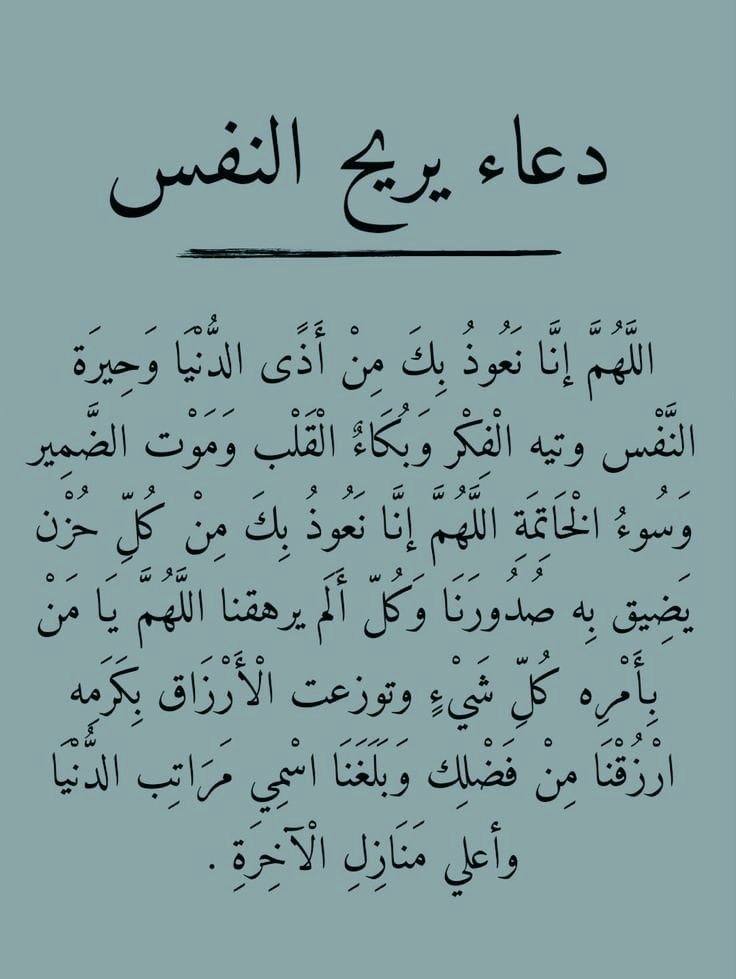 دعاء يريح النفس
اللَّهُمَّ إنَّا نَعُوذُ بِكَ مِنْ أَذًى الدُّنْيَا وَحِيرَة
النَّفْس وتيه الْفِكْر وَبُكَاءٌ الْقَلْب وَمَوْت الضَّمِير
وَسُوءُ الْخَاتِمَةِ اللَّهُمَّ إنَّا نَعُوذُ بِكَ مِنْ كُلِّ حُزْن
يَضِيق بِه صُدُورَنَا وَكُلّ أَلَم يرهقنا اللَّهُمَّ يَا مَنْ
بِأَمْرِه كُلِّ شَيْءٍ وتوزعت الْأَرْزَاق بِكَرَمِه
ارْزُقْنَا مِنْ فَضْلِك وَبَلَغَنَا اسْمِي مَرَاتِب الدُّنْيَا
وأعلي مَنَازِلِ الْآخِرَةِ .